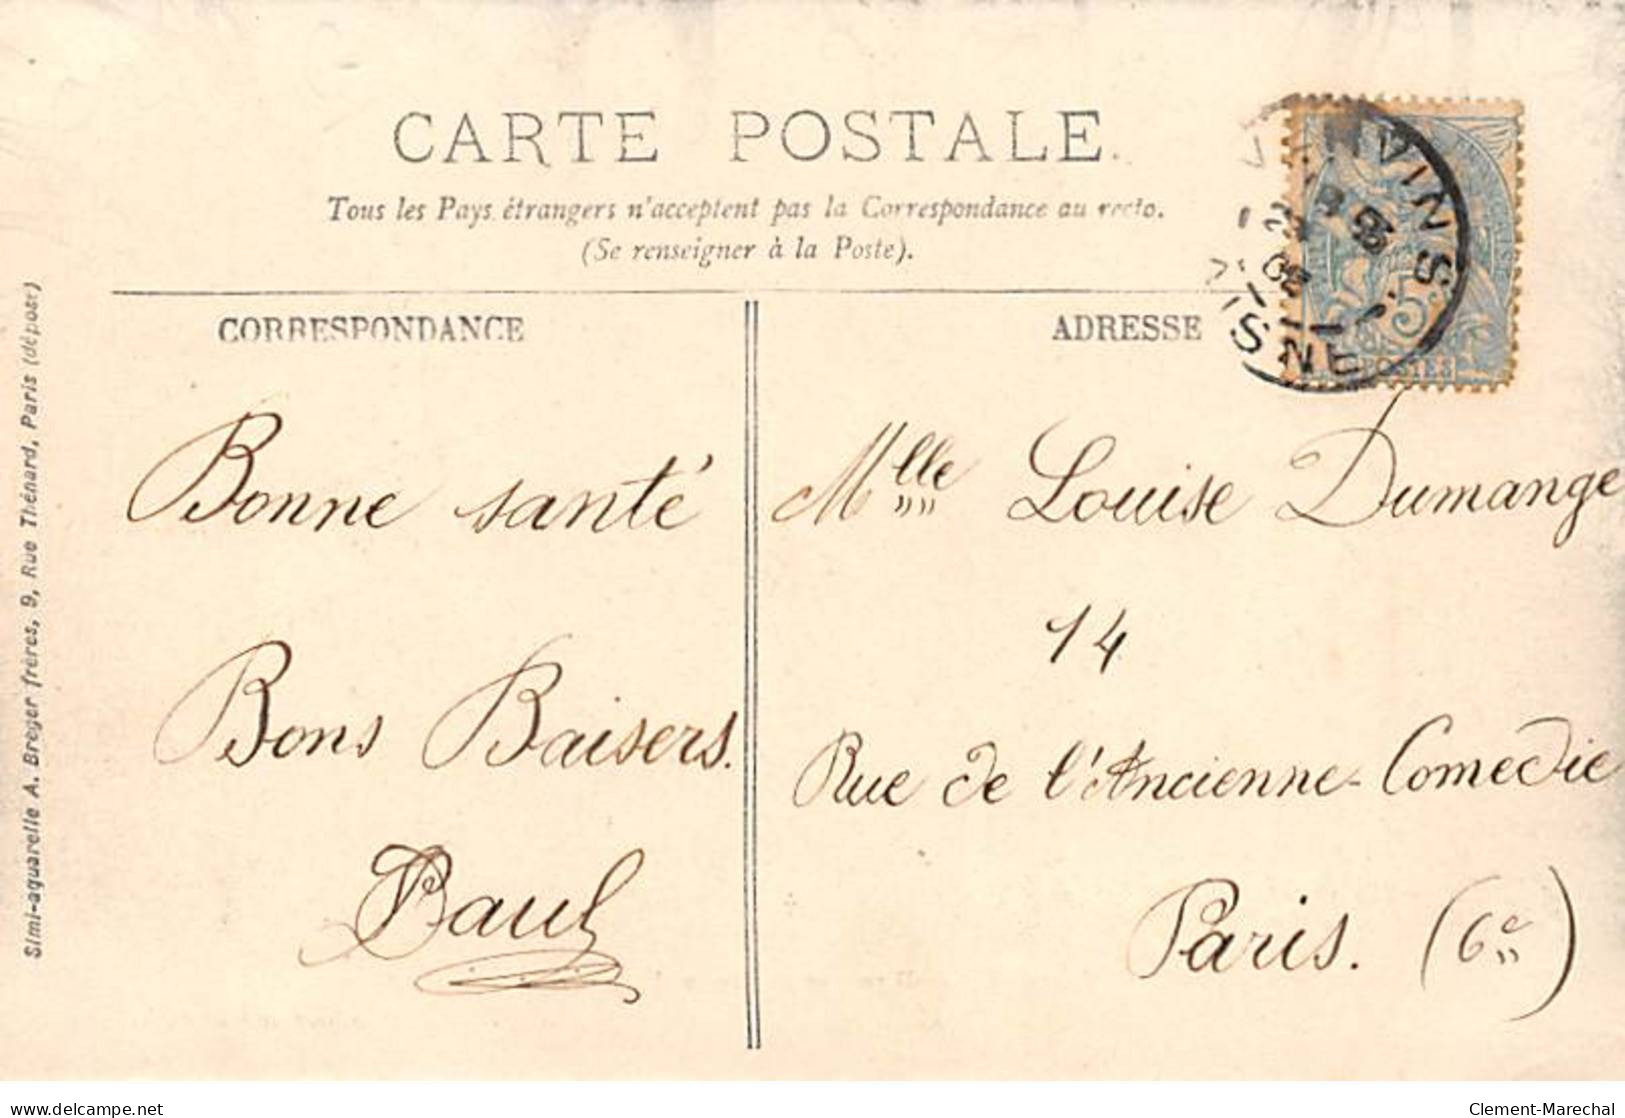 CARTE POSTALE
Tous les Pays étrangers n'acceptent pas la Correspondance au recto.
(Se renseigner à la Poste).
CORRESPONDANCE
ADRESSE
VERVINS
AISNE
5
POSTES
Bonne santé
Bons Baisers.
Paul
Mlle Louise Dumange
14
Rue de l'Ancienne-Comedie
Paris. (6e)
Simi-aquarelle A. Breger frères, 9, Rue Thénard, Paris (déposé)
www.delcampe.net
Clement-Marechal